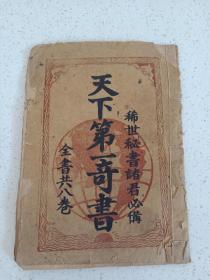 稀世秘書諸君必備
天下第一奇書
全書共八卷